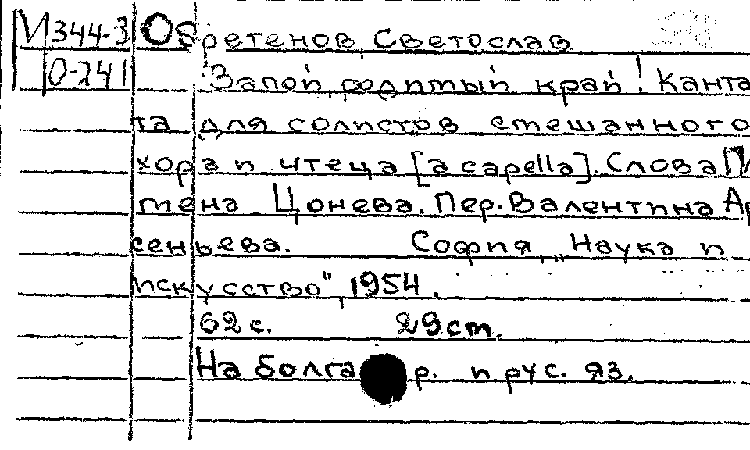 И344-3 Обретенов, Светослав
О-241 Запой, родимый край! Канта-
та для солистов смешанного
хора и чтеца [a capella]. Слова Пи-
мена Цонева. Пер. Валентина Ар-
сеньева. София, "Наука и
искусство", 1954.
62 с. 29 cm.
На болгар. и рус. яз.